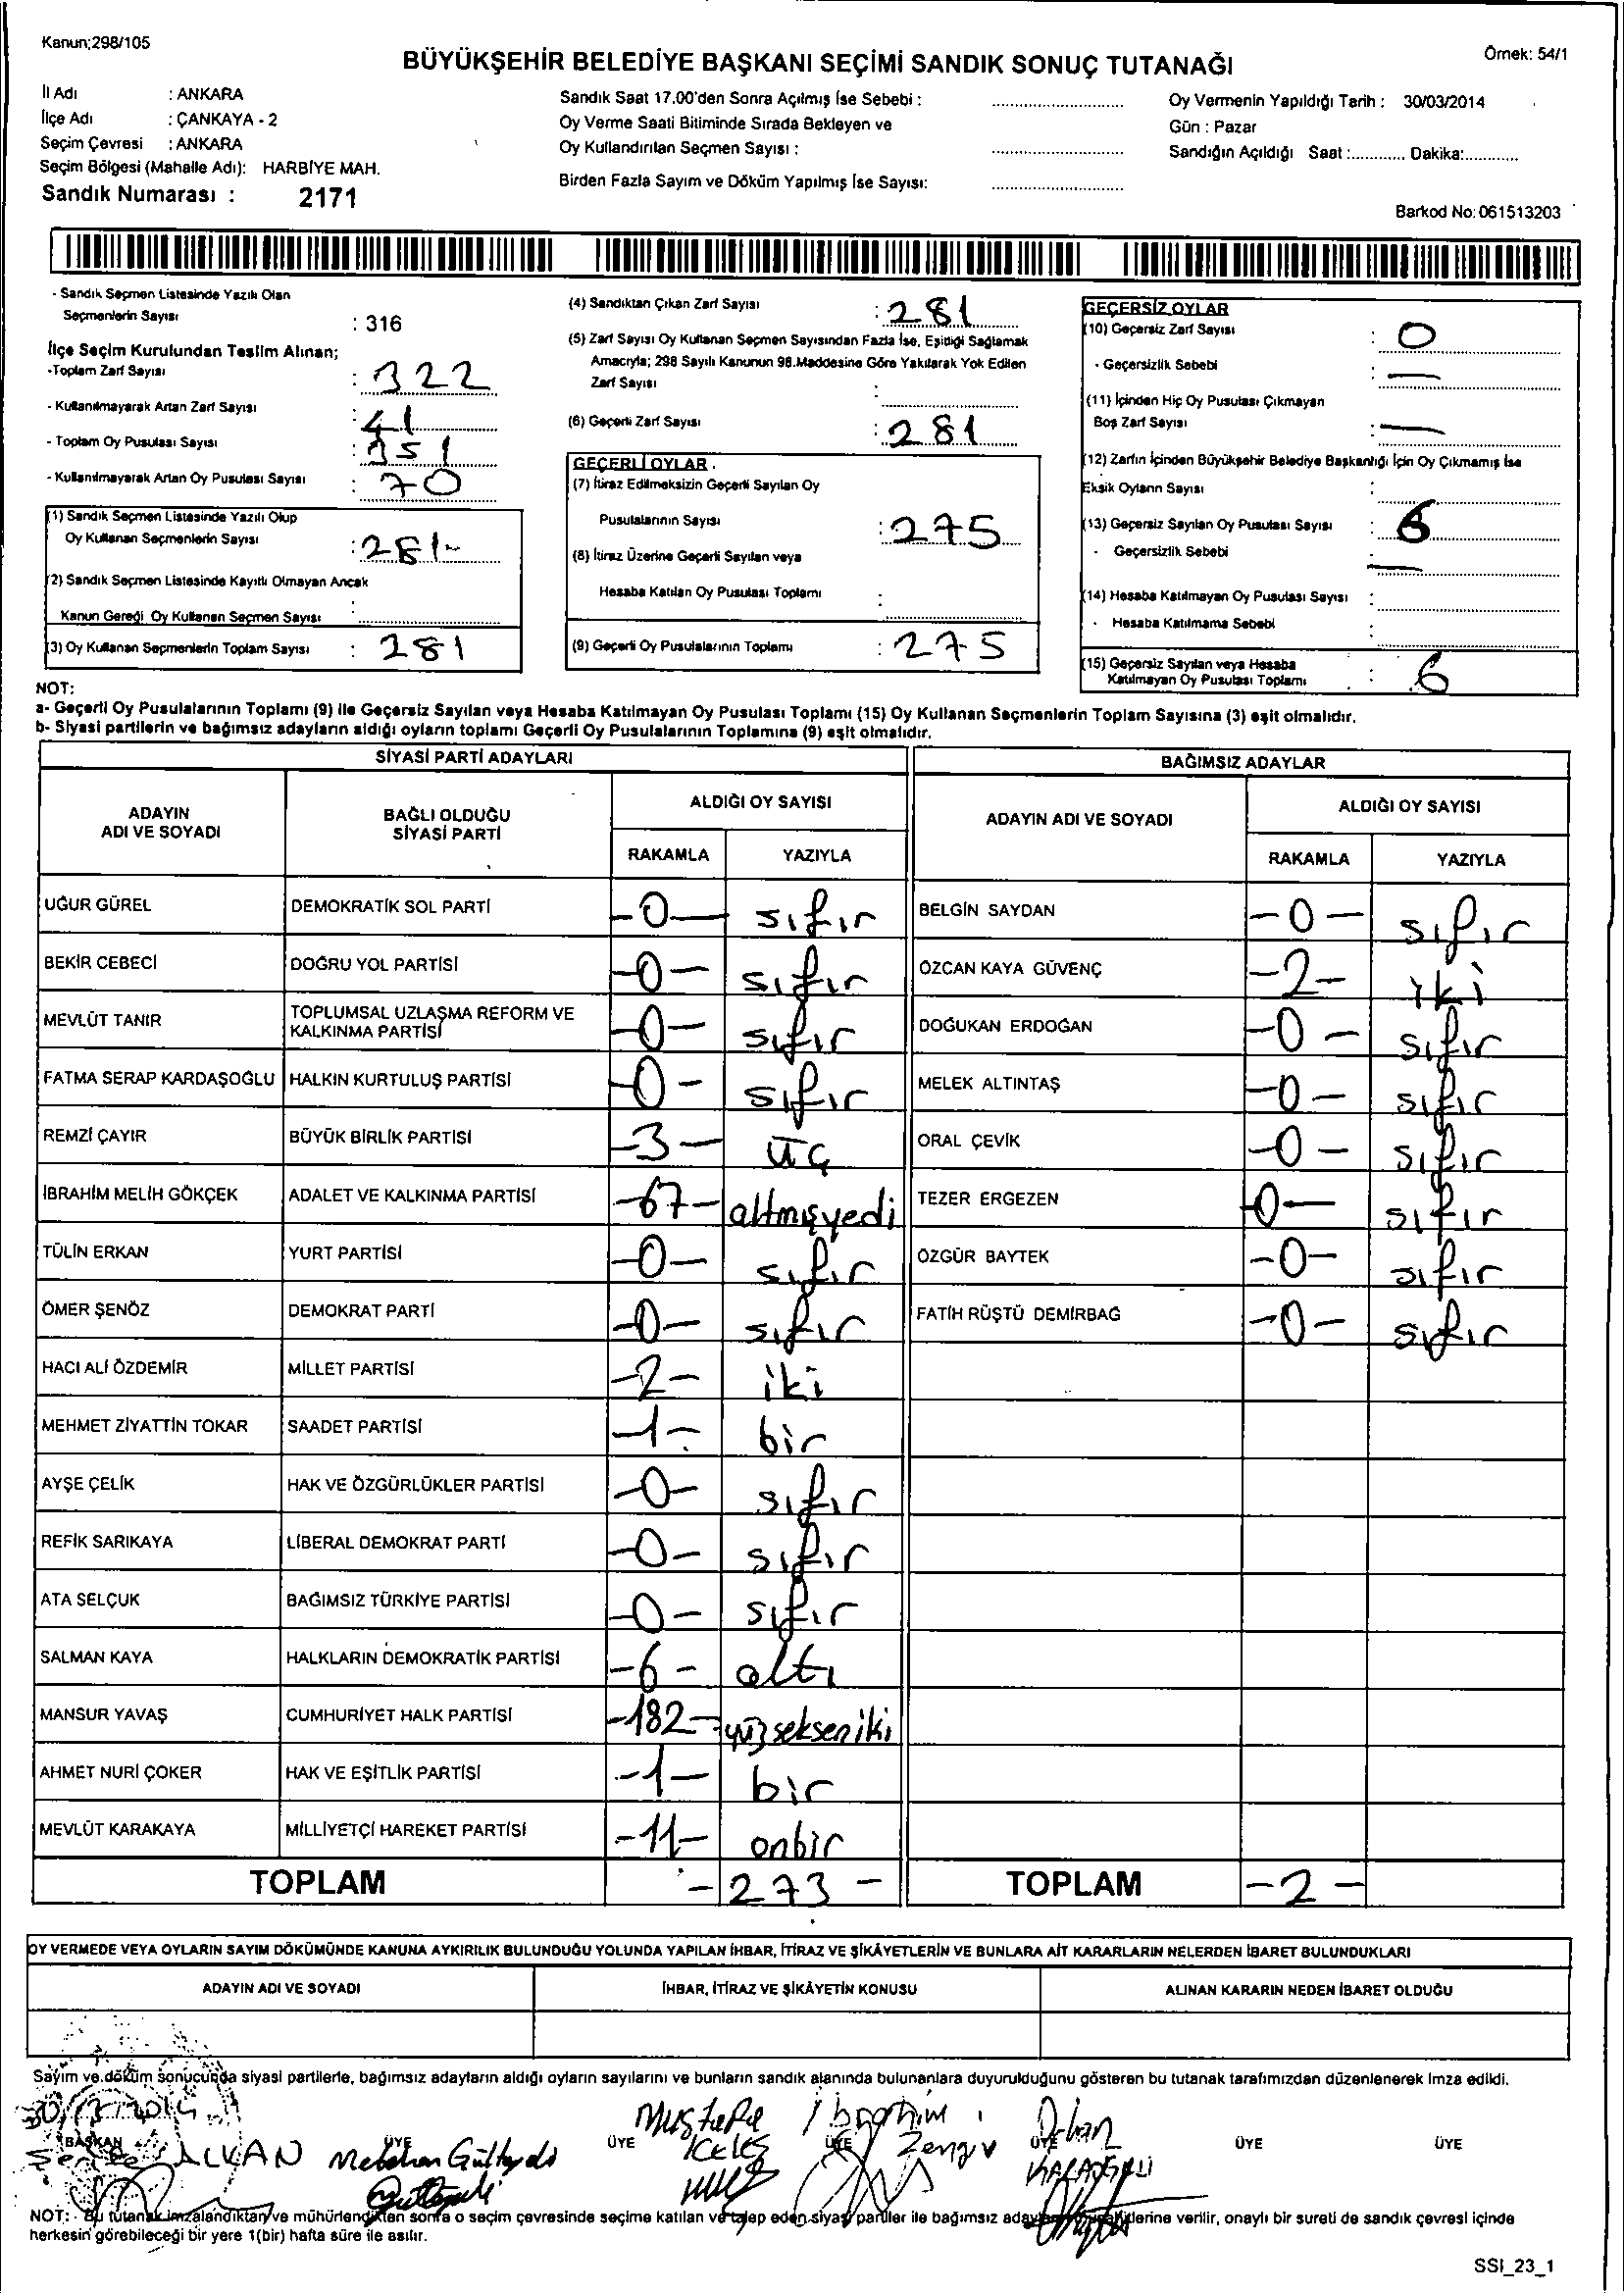 Kanun;298/105
Örnek: 54/1
BÜYÜKŞEHİR BELEDİYE BAŞKANI SEÇİMİ SANDIK SONUÇ TUTANAĞI
İl Adı : ANKARA
İlçe Adı : ÇANKAYA - 2
Seçim Çevresi : ANKARA
Seçim Bölgesi (Mahalle Adı): HARBİYE MAH.
Sandık Numarası : 2171
Sandık Saat 17.00'den Sonra Açılmış İse Sebebi :
Oy Verme Saati Bitiminde Sırada Bekleyen ve
Oy Kullandırılan Seçmen Sayısı :
Birden Fazla Sayım ve Döküm Yapılmış İse Sayısı:
Oy Vermenin Yapıldığı Tarih : 30/03/2014
Gün : Pazar
Sandığın Açıldığı Saat :............ Dakika:............
Barkod No: 061513203
- Sandık Seçmen Listesinde Yazılı Olan
Seçmenlerin Sayısı : 316
İlçe Seçim Kurulundan Teslim Alınan;
-Toplam Zarf Sayısı : 322
- Kullanılmayarak Artan Zarf Sayısı : 41
- Toplam Oy Pusulası Sayısı : 351
- Kullanılmayarak Artan Oy Pusulası Sayısı : 70
(1) Sandık Seçmen Listesinde Yazılı Olup
Oy Kullanan Seçmenlerin Sayısı : 281-
(2) Sandık Seçmen Listesinde Kayıtlı Olmayan Ancak
Kanun Gereği Oy Kullanan Seçmen Sayısı :
(3) Oy Kullanan Seçmenlerin Toplam Sayısı : 281
(4) Sandıktan Çıkan Zarf Sayısı : 281
(5) Zarf Sayısı Oy Kullanan Seçmen Sayısından Fazla İse, Eşitliği Sağlamak
Amacıyla; 298 Sayılı Kanunun 98.Maddesine Göre Yakılarak Yok Edilen
Zarf Sayısı :
(6) Geçerli Zarf Sayısı : 281
GEÇERLİ OYLAR
(7) İtiraz Edilmeksizin Geçerli Sayılan Oy
Pusulalarının Sayısı : 275
(8) İtiraz Üzerine Geçerli Sayılan veya
Hesaba Katılan Oy Pusulası Toplamı :
(9) Geçerli Oy Pusulalarının Toplamı : 275
GEÇERSİZ OYLAR
(10) Geçersiz Zarf Sayısı : 0
- Geçersizlik Sebebi : —
(11) İçinden Hiç Oy Pusulası Çıkmayan
Boş Zarf Sayısı : —
(12) Zarfın İçinden Büyükşehir Belediye Başkanlığı İçin Oy Çıkmamış İse
Eksik Oyların Sayısı :
(13) Geçersiz Sayılan Oy Pusulası Sayısı : 6
- Geçersizlik Sebebi : —
(14) Hesaba Katılmayan Oy Pusulası Sayısı :
- Hesaba Katılmama Sebebi :
(15) Geçersiz Sayılan veya Hesaba
Katılmayan Oy Pusulası Toplamı : 6
NOT:
a- Geçerli Oy Pusulalarının Toplamı (9) ile Geçersiz Sayılan veya Hesaba Katılmayan Oy Pusulası Toplamı (15) Oy Kullanan Seçmenlerin Toplam Sayısına (3) eşit olmalıdır.
b- Siyasi partilerin ve bağımsız adayların aldığı oyların toplamı Geçerli Oy Pusulalarının Toplamına (9) eşit olmalıdır.
SİYASİ PARTİ ADAYLARI
ADAYIN ADI VE SOYADI
BAĞLI OLDUĞU SİYASİ PARTİ
ALDIĞI OY SAYISI
RAKAMLA YAZIYLA
UĞUR GÜREL DEMOKRATİK SOL PARTİ -0- sıfır
BEKİR CEBECİ DOĞRU YOL PARTİSİ -0- sıfır
MEVLÜT TANIR TOPLUMSAL UZLAŞMA REFORM VE KALKINMA PARTİSİ -0- sıfır
FATMA SERAP KARDAŞOĞLU HALKIN KURTULUŞ PARTİSİ -0- sıfır
REMZİ ÇAYIR BÜYÜK BİRLİK PARTİSİ -3- üç
İBRAHİM MELİH GÖKÇEK ADALET VE KALKINMA PARTİSİ -67- altmışyedi
TÜLİN ERKAN YURT PARTİSİ -0- sıfır
ÖMER ŞENÖZ DEMOKRAT PARTİ -0- sıfır
HACI ALİ ÖZDEMİR MİLLET PARTİSİ -2- iki
MEHMET ZİYATTİN TOKAR SAADET PARTİSİ -1- bir
AYŞE ÇELİK HAK VE ÖZGÜRLÜKLER PARTİSİ -0- sıfır
REFİK SARIKAYA LİBERAL DEMOKRAT PARTİ -0- sıfır
ATA SELÇUK BAĞIMSIZ TÜRKİYE PARTİSİ -0- sıfır
SALMAN KAYA HALKLARIN DEMOKRATİK PARTİSİ -6- altı
MANSUR YAVAŞ CUMHURİYET HALK PARTİSİ -182- yüzsekseniki
AHMET NURİ ÇOKER HAK VE EŞİTLİK PARTİSİ -1- bir
MEVLÜT KARAKAYA MİLLİYETÇİ HAREKET PARTİSİ -11- onbir
TOPLAM -273-
BAĞIMSIZ ADAYLAR
ADAYIN ADI VE SOYADI
ALDIĞI OY SAYISI
RAKAMLA YAZIYLA
BELGİN SAYDAN -0- sıfır
ÖZCAN KAYA GÜVENÇ -2- iki
DOĞUKAN ERDOĞAN -0- sıfır
MELEK ALTINTAŞ -0- sıfır
ORAL ÇEVİK -0- sıfır
TEZER ERGEZEN -0- sıfır
ÖZGÜR BAYTEK -0- sıfır
FATİH RÜŞTÜ DEMİRBAĞ -0- sıfır
TOPLAM -2-
OY VERMEDE VEYA OYLARIN SAYIM DÖKÜMÜNDE KANUNA AYKIRILIK BULUNDUĞU YOLUNDA YAPILAN İHBAR, İTİRAZ VE ŞİKÂYETLERİN VE BUNLARA AİT KARARLARIN NELERDEN İBARET BULUNDUKLARI
ADAYIN ADI VE SOYADI İHBAR, İTİRAZ VE ŞİKÂYETİN KONUSU ALINAN KARARIN NEDEN İBARET OLDUĞU
Sayım ve döküm sonucunda siyasi partilerle, bağımsız adayların aldığı oyların sayılarını ve bunların sandık alanında bulunanlara duyurulduğunu gösteren bu tutanak tarafımızdan düzenlenerek imza edildi.
30/3/2014
BAŞKAN ÜYE ÜYE ÜYE ÜYE ÜYE ÜYE
Mustafa KELEŞ
İbrahim Zengin
Orhan
NOT: - Bu tutanak imzalandıktan ve mühürlendikten sonra o seçim çevresinde seçime katılan ve talep eden siyasi partiler ile bağımsız verilir, onaylı bir sureti de sandık çevresi içinde
herkesin görebileceği bir yere 1(bir) hafta süre ile asılır.
SSI_23_1